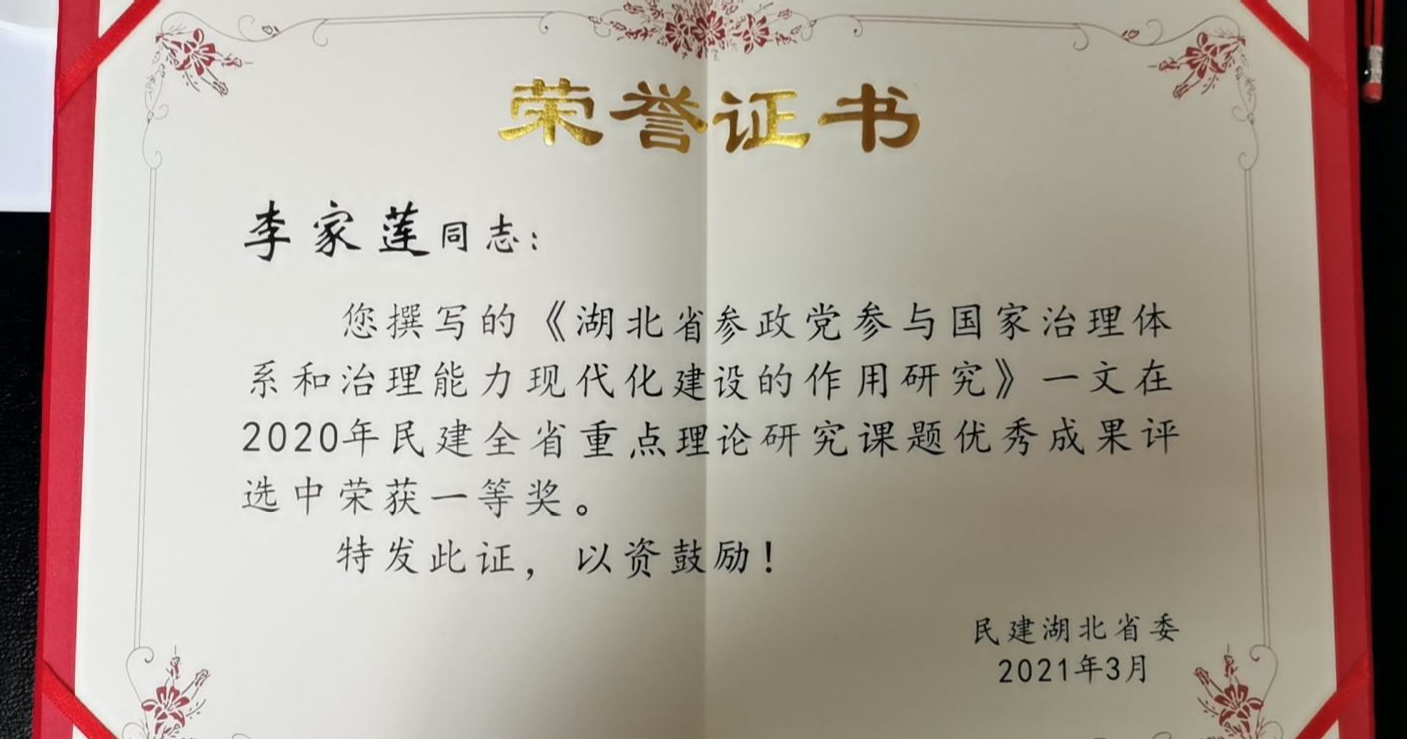 荣誉证书
李家莲同志：
您撰写的《湖北省参政党参与国家治理体
系和治理能力现代化建设的作用研究》一文在
2020年民建全省重点理论研究课题优秀成果评
选中荣获一等奖。
特发此证，以资鼓励！
民建湖北省委
2021年3月